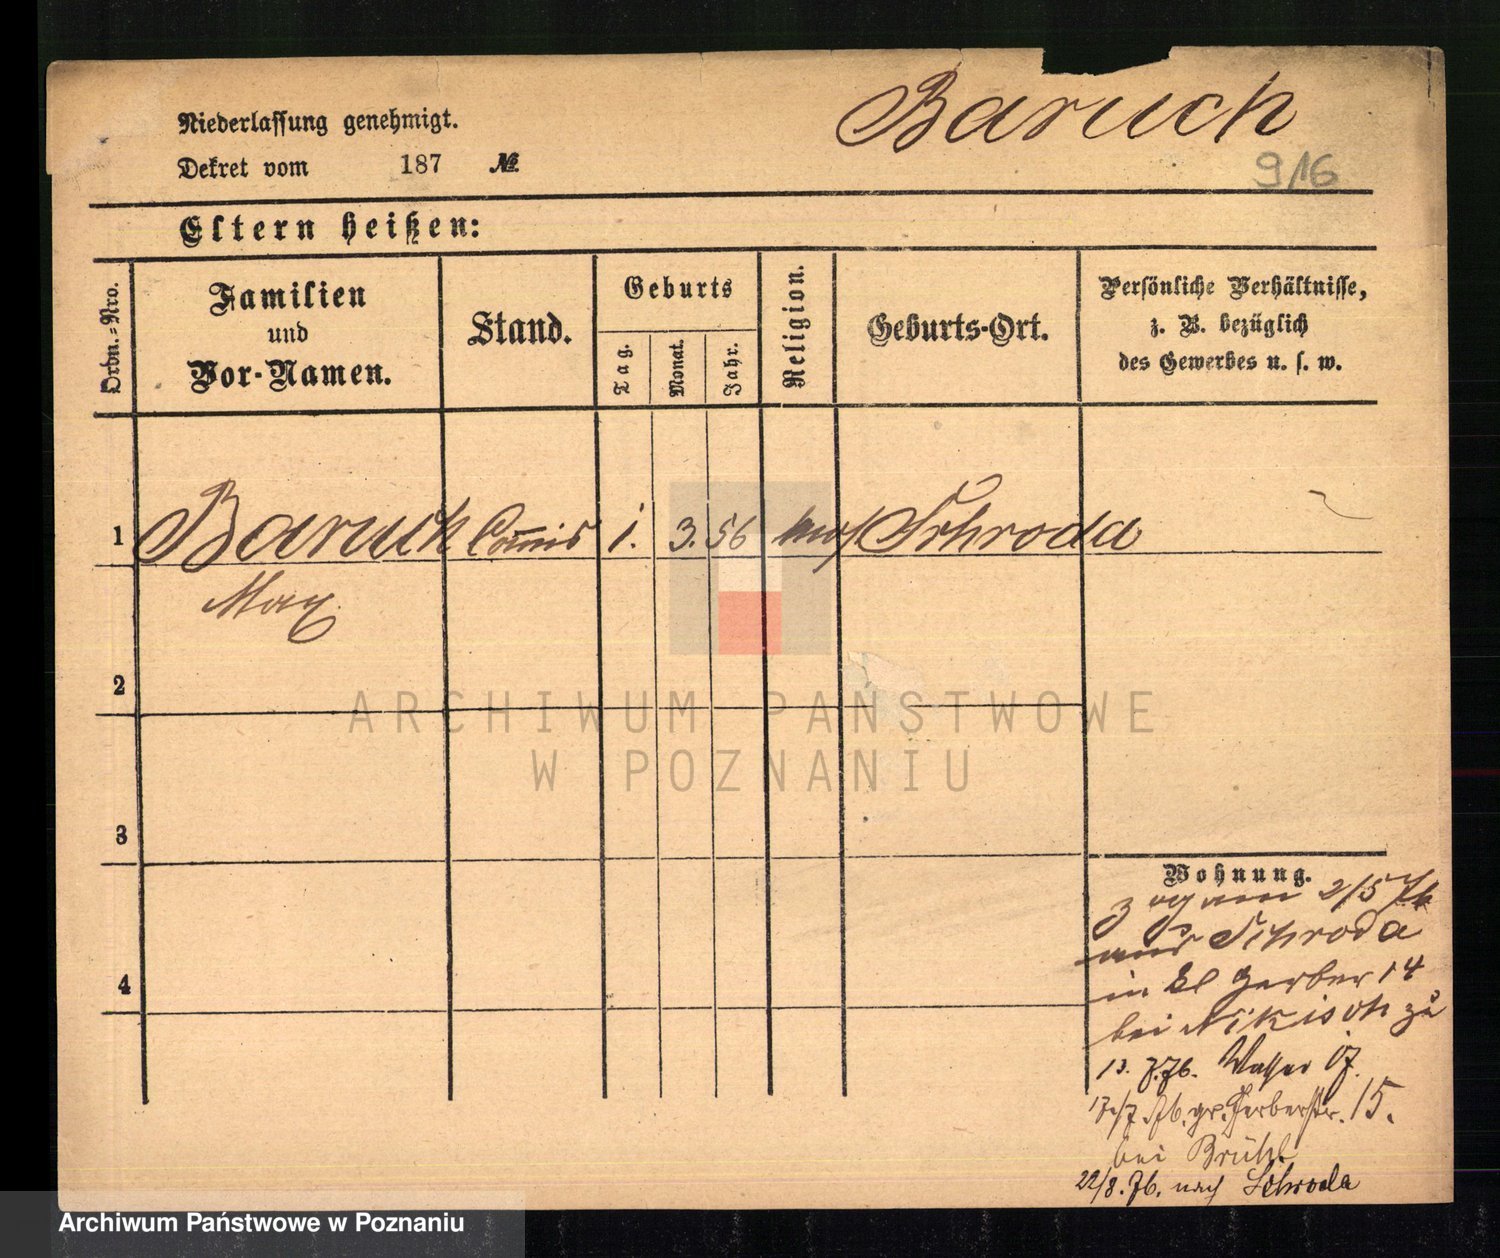 Baruch
Niederlassung genehmigt.
Dekret vom 187 №
916
Eltern heißen:
Ordn.-Nro.
Familien
und
Vor-Namen.
Stand.
Geburts
Tag.
Monat.
Jahr.
Religion.
Geburts-Ort.
Persönliche Verhältnisse,
z. B. bezüglich
des Gewerbes u. s. w.
1 Baruch Com̅is 1. 3. 56 mos Schroda
Max
2
3
4
Wohnung.
zog am 2/5 76
aus Schroda
in kl Gerber 14
bei Nikisch zu
13. 7. 76. Wasser 17.
17/7. 76. gr. Gerberstr. 15.
bei Brühl
22/8. 76. nach Schroda
ARCHIWUM PAŃSTWOWE
W POZNANIU
Archiwum Państwowe w Poznaniu